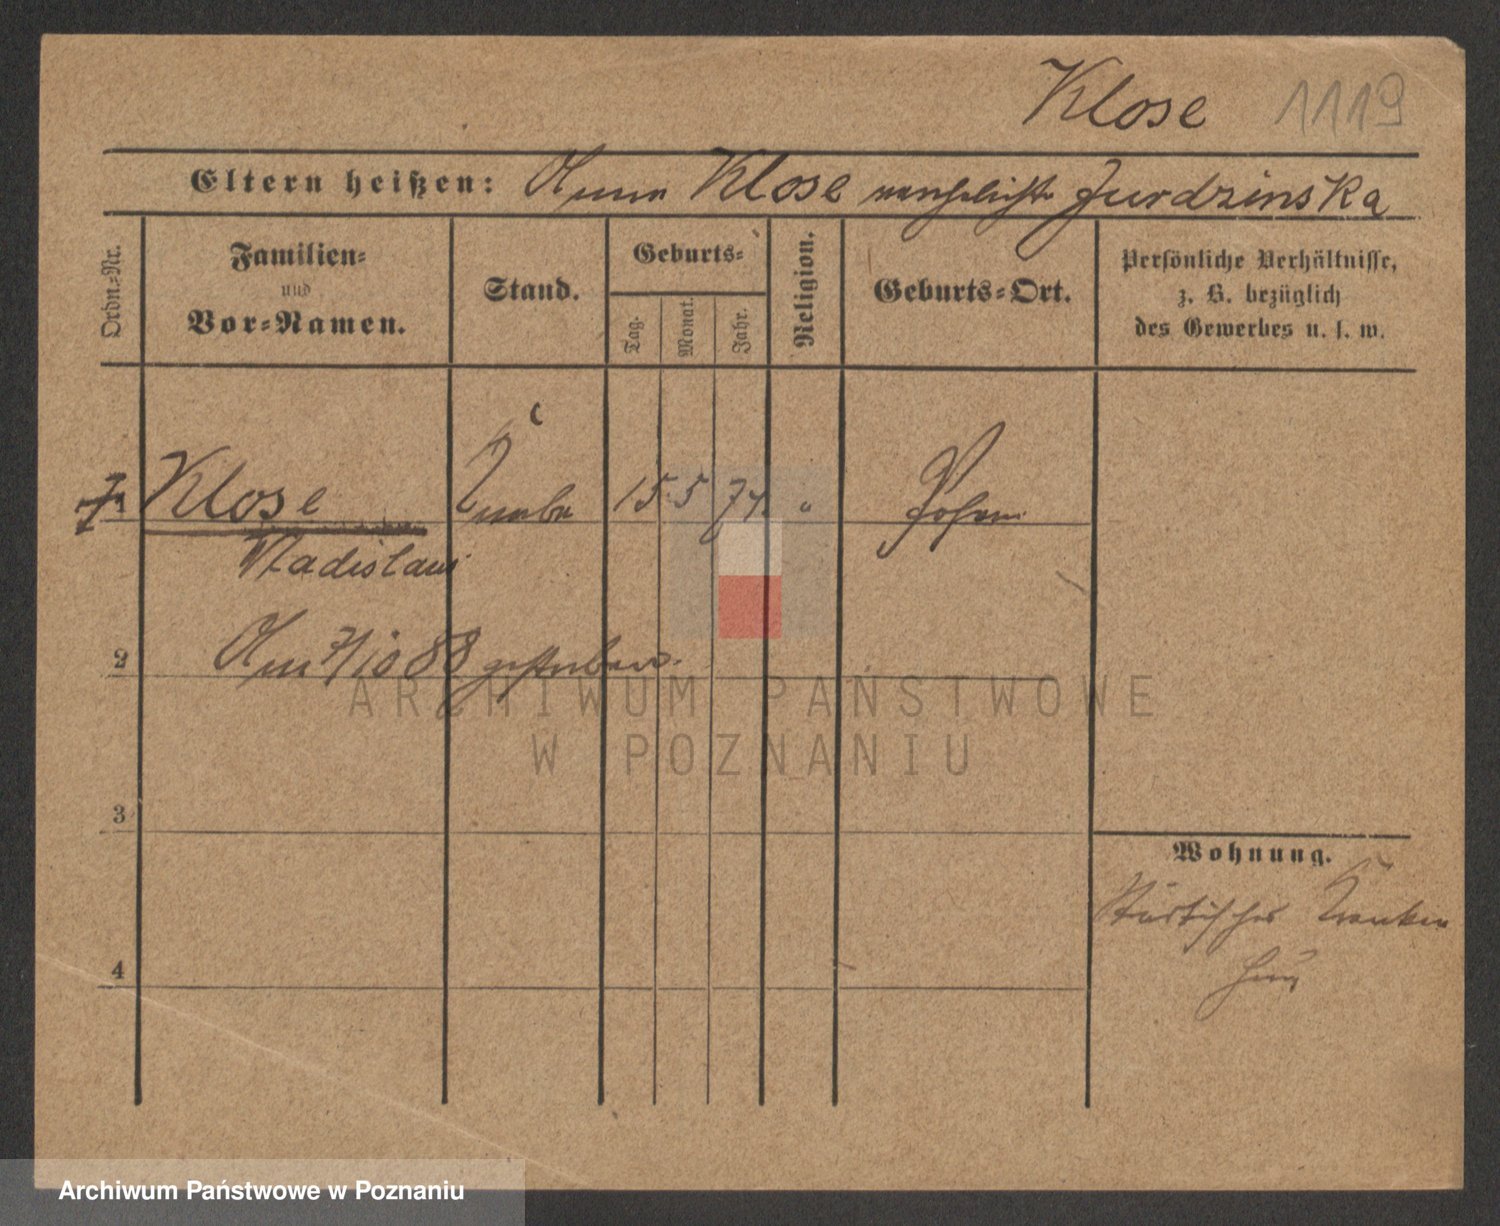 Klose 1119
Eltern heißen: Anna Klose verehelichte Jurdzinska
Ordn.-Nr.
Familien-
und
Vor-Namen.
Stand.
Geburts-
Tag.
Monat.
Jahr.
Religion.
Geburts-Ort.
Persönliche Verhältnisse,
z. B. bezüglich
des Gewerbes u. s. w.
1 Klose Knabe 15 5 74 " Posen
Wladislaus
2 Am 7/10 88 gestorben.
ARCHIWUM PAŃSTWOWE
W POZNANIU
3
Wohnung.
Städtisches Kranken
haus
4
Archiwum Państwowe w Poznaniu